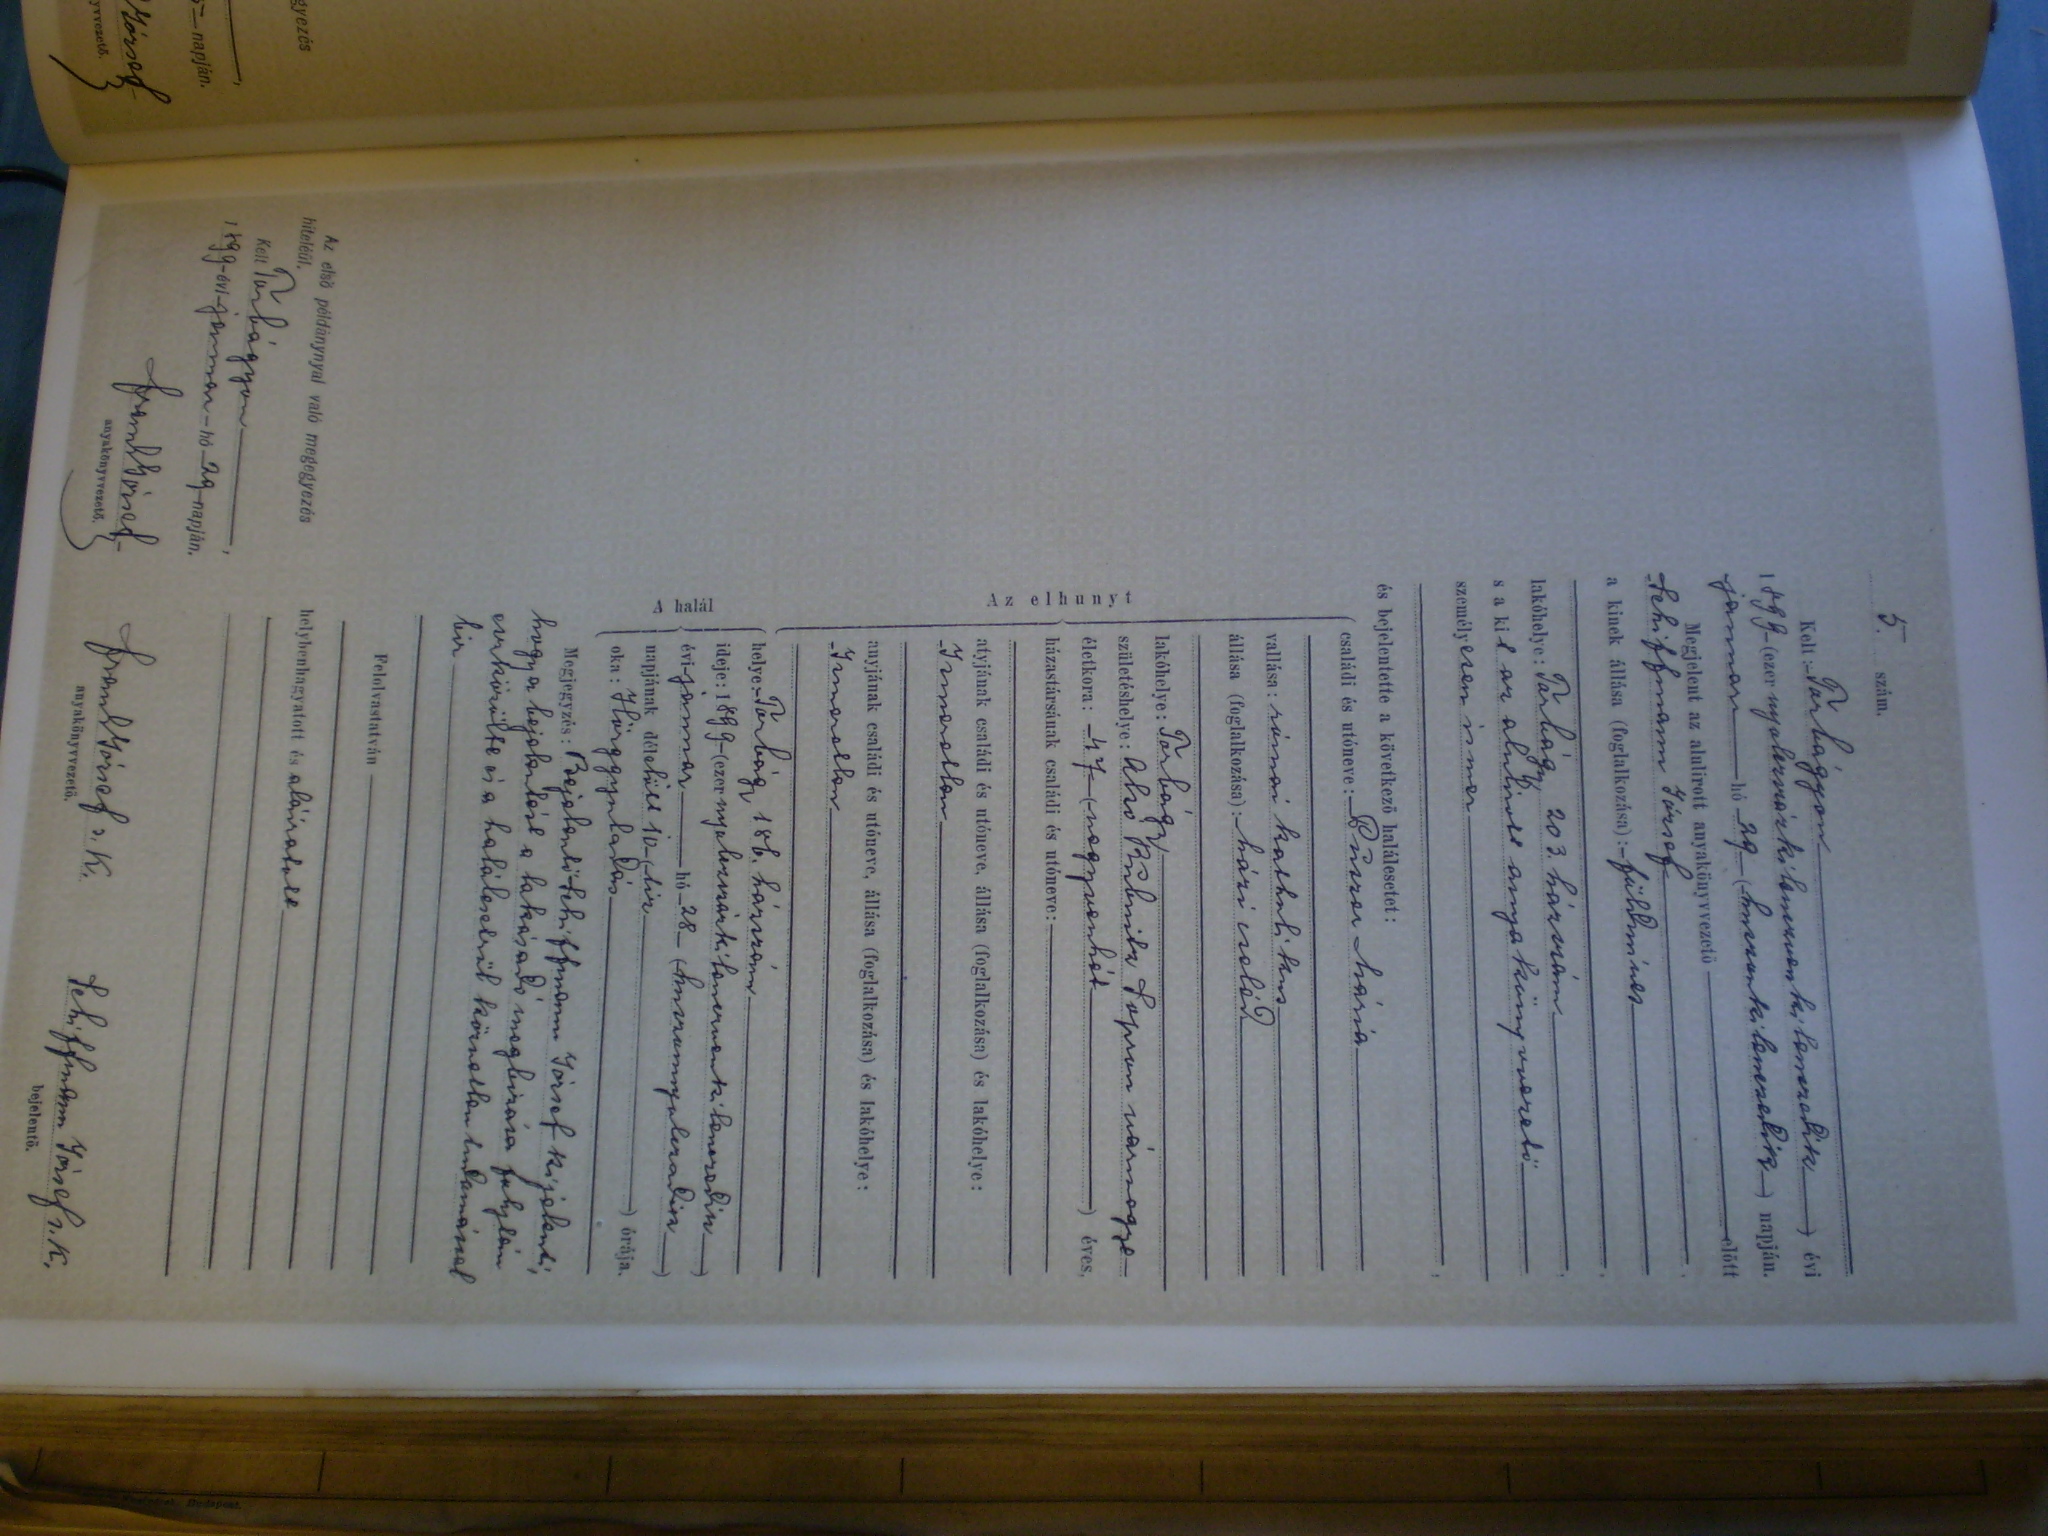 5. szám.
Kelt: Torbágyon
1899 (ezernyolczszázkilenczvenkilenczedik) évi
január hó 29 (huszonkilenczedik) napján.
Megjelent az alulirott anyakönyvvezető előtt
Schiffmann József,
a kinek állása (foglalkozása): földmíves,
lakóhelye: Torbágy 203. házszám,
s a kit az alulirott anyakönyvvezető
személyesen ismer,
és bejelentette a következő halálesetet:
Az elhunyt
családi és utóneve: Mária
vallása: római katholikus
állása (foglalkozása): házi cseléd
lakóhelye: Torbágy
születéshelye: Sopron vármegye
életkora: 47 (negyvenhét) éves,
házastársának családi és utóneve:
atyjának családi és utóneve, állása (foglalkozása) és lakóhelye:
Ismeretlen
anyjának családi és utóneve, állása (foglalkozása) és lakóhelye:
Ismeretlen
A halál
helye: Torbágy 186. házszám
ideje: 1899 (ezernyolczszázkilenczvenkilenczedik)
évi január hó 28 (huszonnyolczadik)
napjának délelőtt 10 (tíz) órája.
oka: Hörggyuladás
Megjegyzés: Bejelentő Schiffmann József kijelenti,
hogy a bejelentést a lakásadó megbízása folytán
eszközölte és a halálesetről közvetlen tudomással
bír
Felolvastatván
helybenhagyatott és aláíratott
Frankl József s. k.
anyakönyvvezető.
Schiffmann József s. k.
bejelentő.
Az első példánynyal való megegyezés
hiteléül.
Kelt Torbágyon,
1899 évi január hó 29 napján.
Frankl József
anyakönyvvezető.
gyezés
napján.
József
yvvezető.
Budapest.